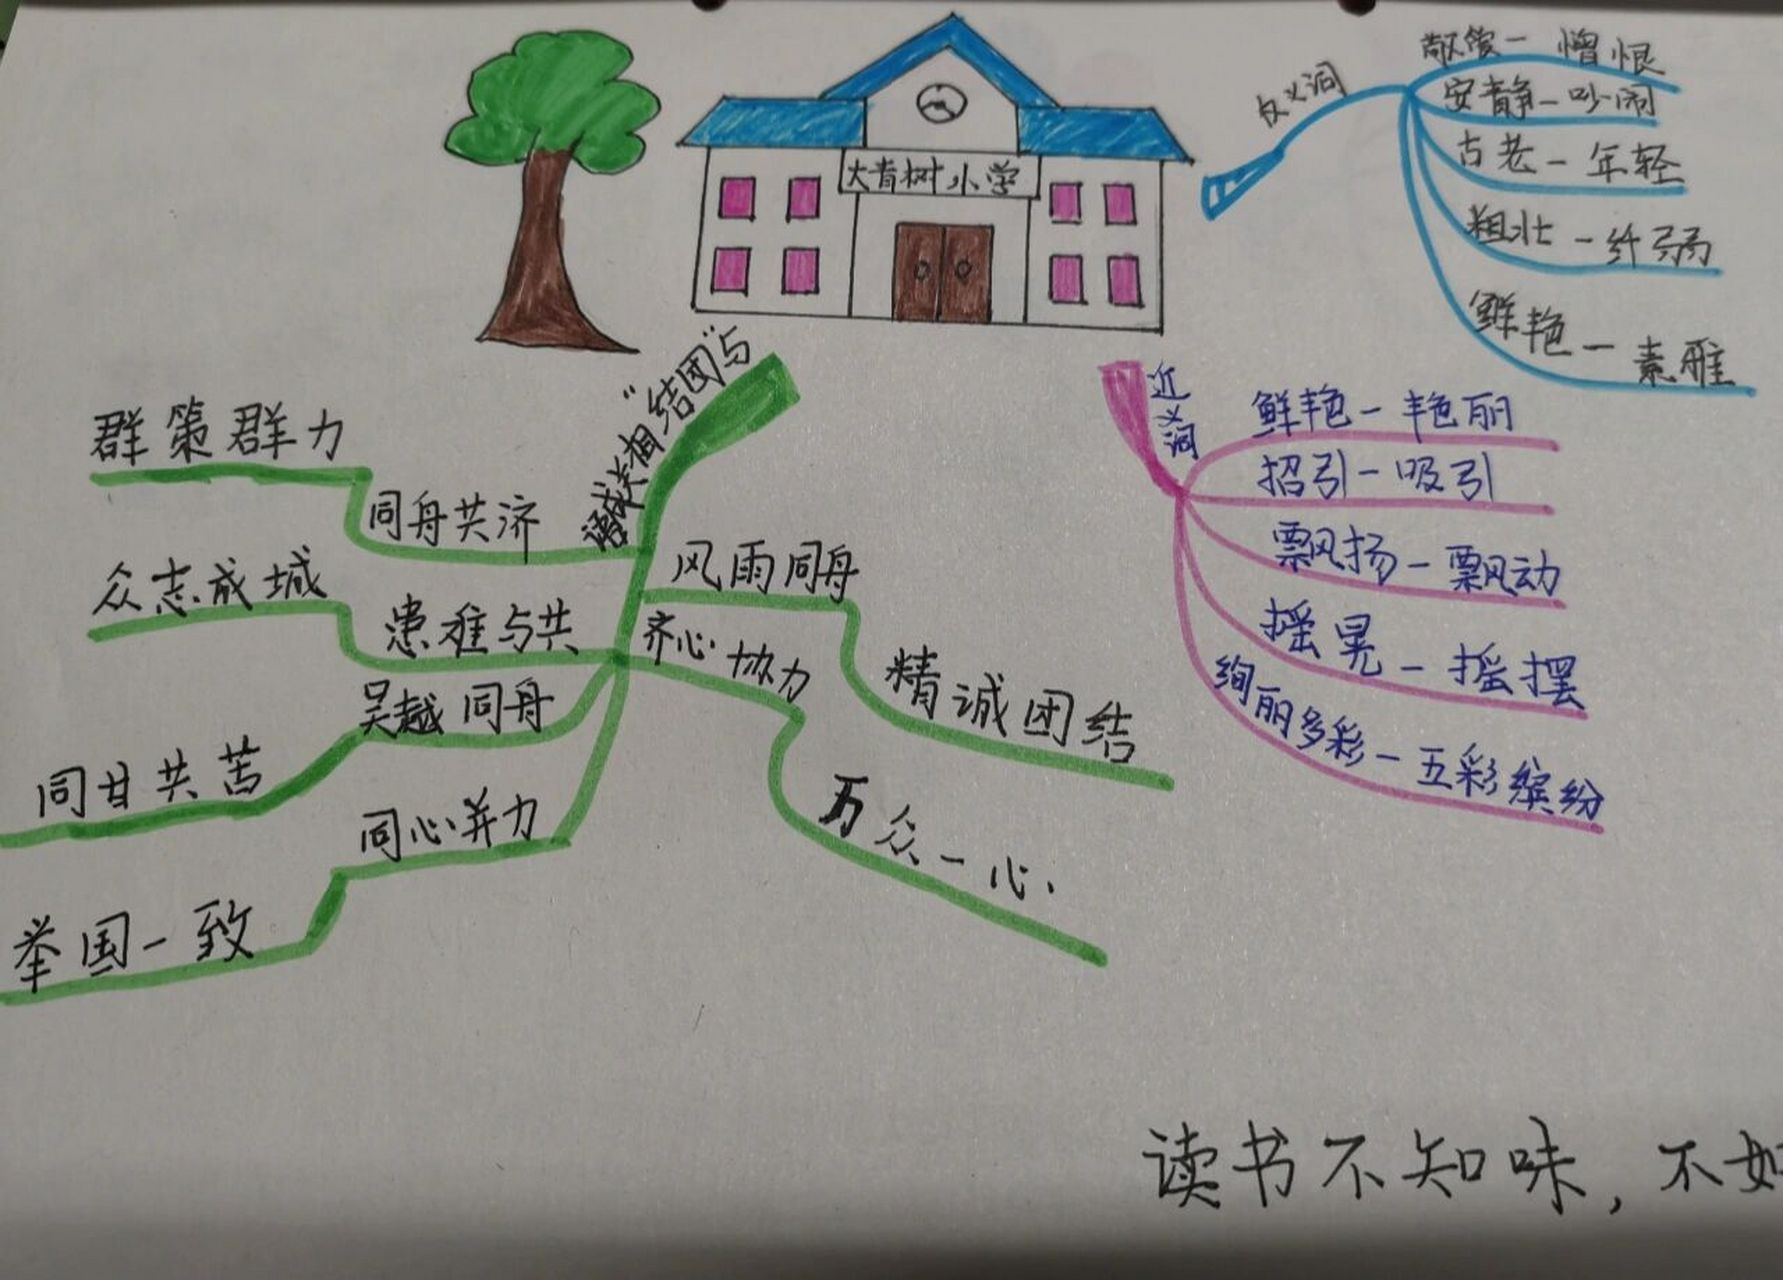 大青树小学
反义词
敬爱－憎恨
安静－吵闹
古老－年轻
粗壮－纤弱
鲜艳－素雅
近义词
鲜艳－艳丽
招引－吸引
飘扬－飘动
摇晃－摇摆
绚丽多彩－五彩缤纷
与"团结"相关成语
同舟共济
群策群力
患难与共
众志成城
吴越同舟
同甘共苦
同心并力
举国一致
风雨同舟
精诚团结
齐心协力
万众一心
读书不知味，不如